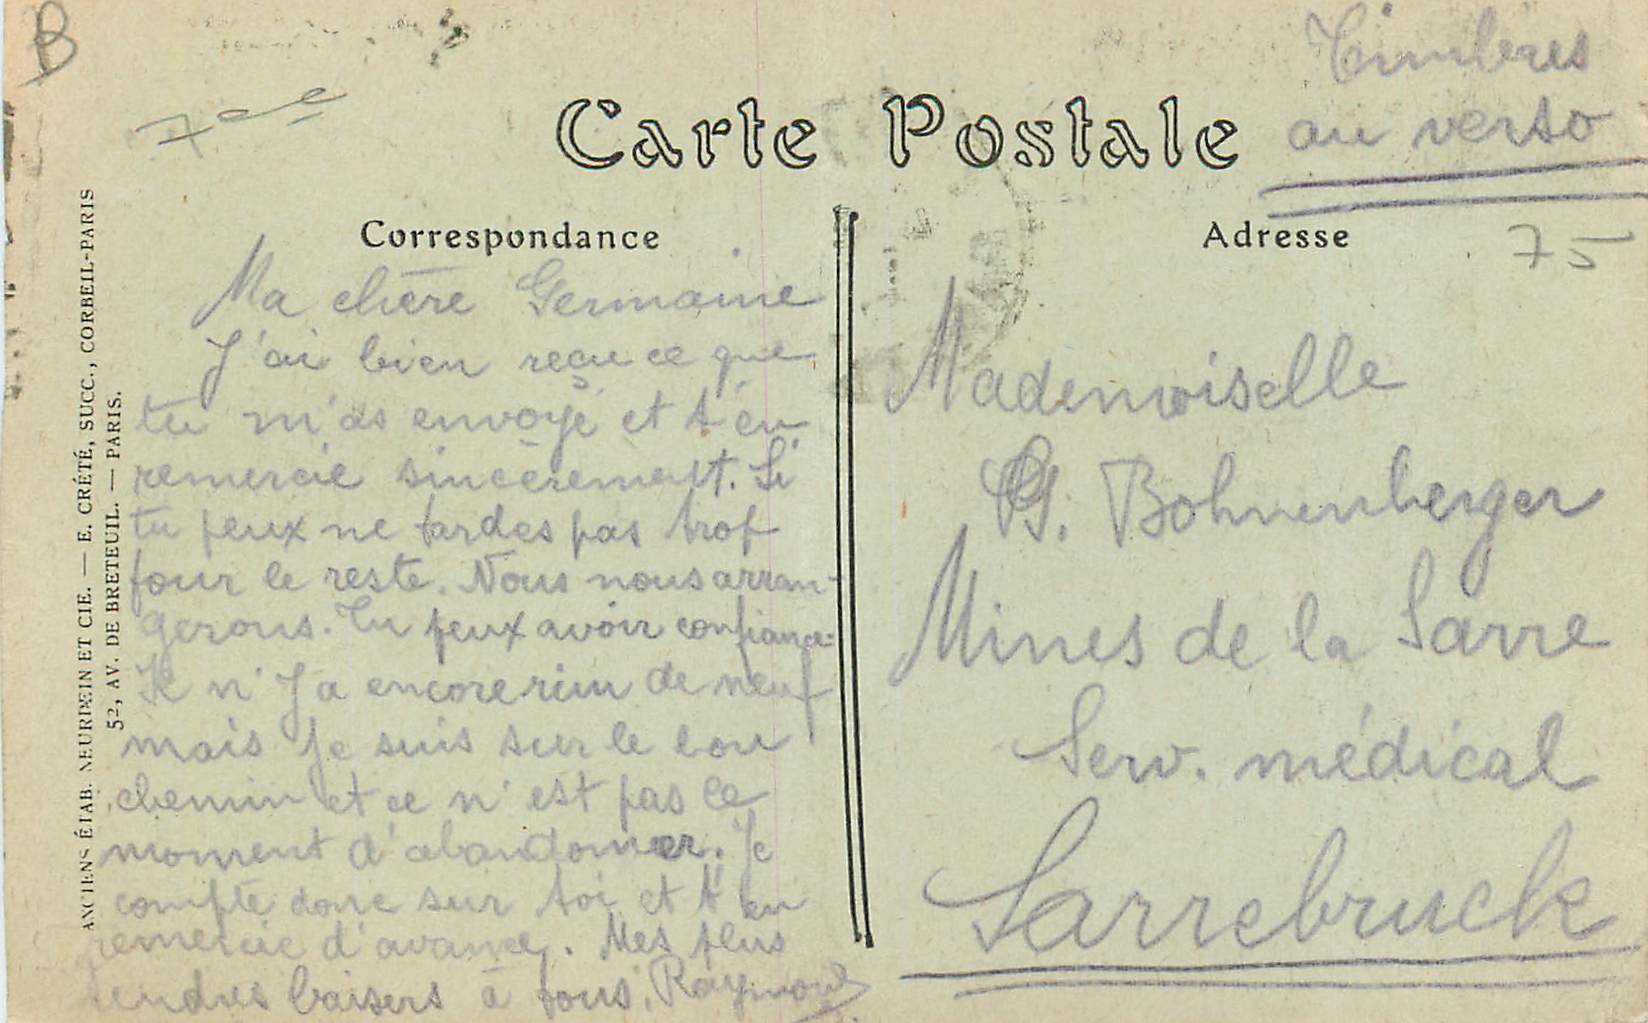 B
Timbres
au verso
Carte Postale
Correspondance
Adresse
75
Ma chère Germaine
J'ai bien reçu ce que
tu m'as envoyé et t'en
remercie sincèrement. Si
tu peux ne tardes pas trop
pour le reste. Nous nous arran-
gerons. Tu peux avoir confiance.
Il n'y a encore rien de neuf
mais je suis sur le bon
chemin et ce n'est pas le
moment d'abandonner. Je
compte donc sur toi et t'en
remercie d'avance. Mes plus
tendres baisers à tous. Raymond
Mademoiselle
G. Bohnenberger
Mines de la Sarre
Serv. médical
Sarrebruck
ANCIENS ÉTAB. NEURDEIN ET CIE. — E. CRÉTÉ, SUCC., CORBEIL-PARIS
52, AV. DE BRETEUIL. — PARIS.